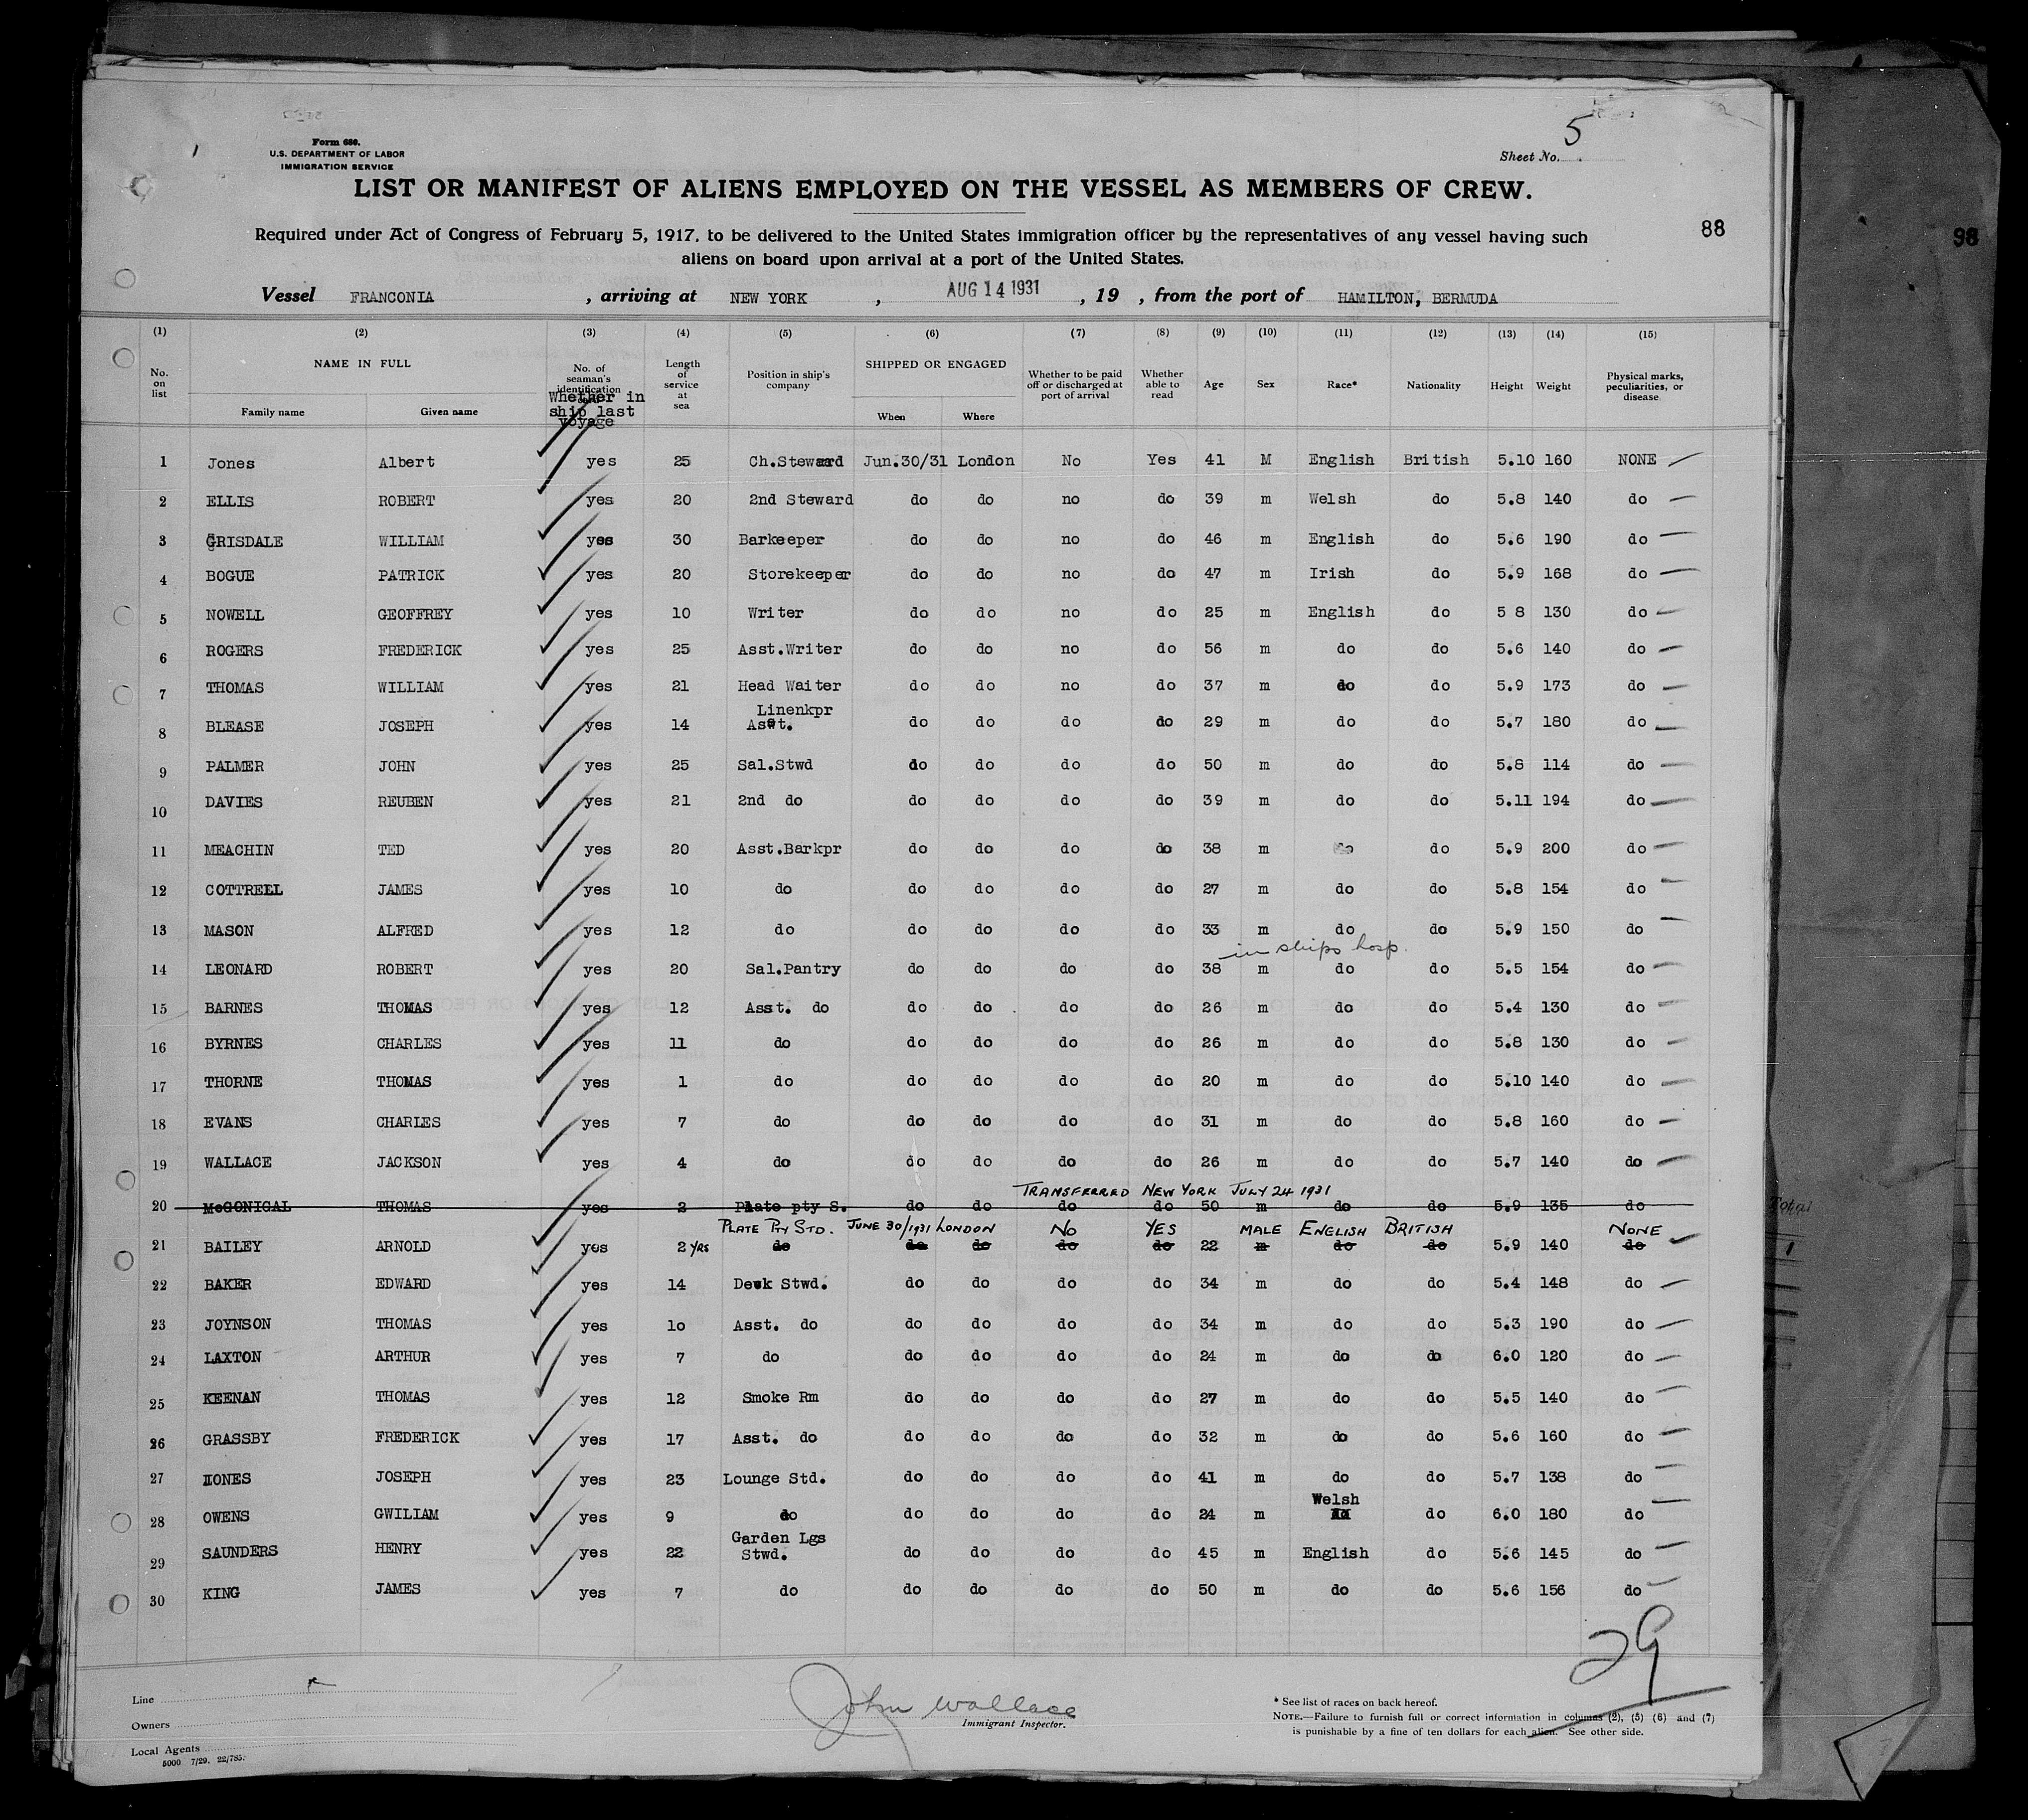 5
Form 680.
U.S. DEPARTMENT OF LABOR
IMMIGRATION SERVICE
Sheet No.
LIST OR MANIFEST OF ALIENS EMPLOYED ON THE VESSEL AS MEMBERS OF CREW.
88
98
Required under Act of Congress of February 5, 1917, to be delivered to the United States immigration officer by the representatives of any vessel having such
aliens on board upon arrival at a port of the United States.
Vessel FRANCONIA , arriving at NEW YORK , AUG 14 1931 , 19 , from the port of HAMILTON, BERMUDA
(1) (2) (3) (4) (5) (6) (7) (8) (9) (10) (11) (12) (13) (14) (15)
No. on list NAME IN FULL Family name Given name No. of seaman's identification card Whether in ship last voyage Length of service at sea Position in ship's company SHIPPED OR ENGAGED When Where Whether to be paid off or discharged at port of arrival Whether able to read Age Sex Race* Nationality Height Weight Physical marks, peculiarities, or disease
1 Jones Albert yes 25 Ch.Steward Jun.30/31 London No Yes 41 M English British 5.10 160 NONE
2 ELLIS ROBERT yes 20 2nd Steward do do no do 39 m Welsh do 5.8 140 do
3 GRISDALE WILLIAM yes 30 Barkeeper do do no do 46 m English do 5.6 190 do
4 BOGUE PATRICK yes 20 Storekeeper do do no do 47 m Irish do 5.9 168 do
5 NOWELL GEOFFREY yes 10 Writer do do no do 25 m English do 5 8 130 do
6 ROGERS FREDERICK yes 25 Asst.Writer do do no do 56 m do do 5.6 140 do
7 THOMAS WILLIAM yes 21 Head Waiter do do no do 37 m do do 5.9 173 do
Linenkpr
8 BLEASE JOSEPH yes 14 Asst. do do do do 29 m do do 5.7 180 do
9 PALMER JOHN yes 25 Sal.Stwd do do do do 50 m do do 5.8 114 do
10 DAVIES REUBEN yes 21 2nd do do do do do 39 m do do 5.11 194 do
11 MEACHIN TED yes 20 Asst.Barkpr do do do do 38 m do do 5.9 200 do
12 COTTRELL JAMES yes 10 do do do do do 27 m do do 5.8 154 do
13 MASON ALFRED yes 12 do do do do do 33 m do do 5.9 150 do
in ships hosp.
14 LEONARD ROBERT yes 20 Sal.Pantry do do do do 38 m do do 5.5 154 do
15 BARNES THOMAS yes 12 Asst. do do do do do 26 m do do 5.4 130 do
16 BYRNES CHARLES yes 11 do do do do do 26 m do do 5.8 130 do
17 THORNE THOMAS yes 1 do do do do do 20 m do do 5.10 140 do
18 EVANS CHARLES yes 7 do do do do do 31 m do do 5.8 160 do
19 WALLACE JACKSON yes 4 do do do do do 26 m do do 5.7 140 do
TRANSFERRED NEW YORK JULY 24 1931
20 McGONIGAL THOMAS yes 2 Plate pty S. do do do do 50 m do do 5.9 135 do
PLATE PTY STD. JUNE 30/1931 LONDON NO YES MALE ENGLISH BRITISH NONE
21 BAILEY ARNOLD yes 2 YRS do do do do do 22 m do do 5.9 140 do
22 BAKER EDWARD yes 14 Deck Stwd. do do do do 34 m do do 5.4 148 do
23 JOYNSON THOMAS yes 1o Asst. do do do do do 34 m do do 5.3 190 do
24 LAXTON ARTHUR yes 7 do do do do do 24 m do do 6.0 120 do
25 KEENAN THOMAS yes 12 Smoke Rm do do do do 27 m do do 5.5 140 do
26 GRASSBY FREDERICK yes 17 Asst. do do do do do 32 m do do 5.6 160 do
27 JONES JOSEPH yes 23 Lounge Std. do do do do 41 m do do 5.7 138 do
Welsh
28 OWENS GWILIAM yes 9 do do do do do 24 m do 6.0 180 do
Garden Lgs
29 SAUNDERS HENRY yes 22 Stwd. do do do do 45 m English do 5.6 145 do
30 KING JAMES yes 7 do do do do do 50 m do do 5.6 156 do
29
Total
Line
Owners
Local Agents
5000 7/29. 22/785.
John Wallace
Immigrant Inspector.
* See list of races on back hereof.
NOTE.—Failure to furnish full or correct information in columns (2), (5) (6) and (7)
is punishable by a fine of ten dollars for each alien. See other side.